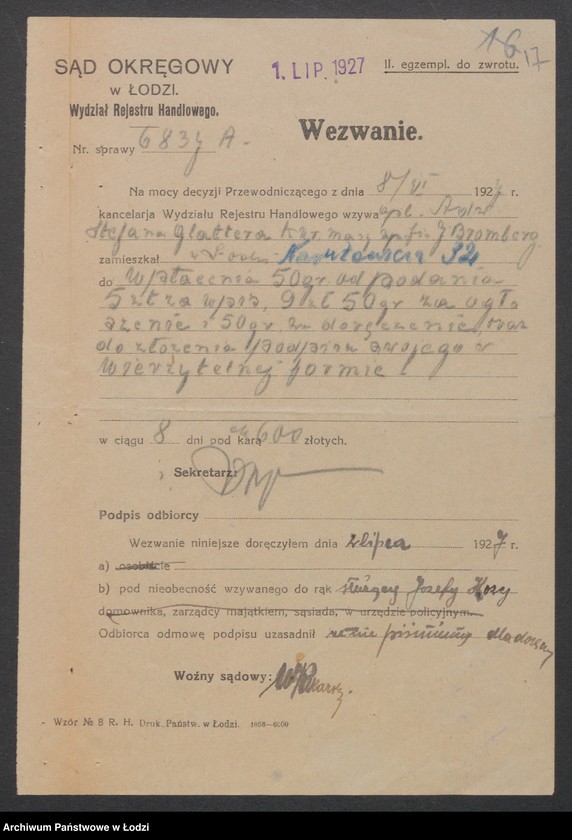 16 17
SĄD OKRĘGOWY
w ŁODZI.
Wydział Rejestru Handlowego.
1. LIP. 1927
II. egzempl. do zwrotu.
Wezwanie.
Nr. sprawy 6837 A.
Na mocy decyzji Przewodniczącego z dnia 8/VI 1927 r.
kancelarja Wydziału Rejestru Handlowego wzywa
Stefana Glattera Bromberg
zamieszkał 32
do wpłacenia 50 gr. od podania
5 zł za wpis, 9 zł 50 gr za ogło
szenie i 50 gr. za doręczenie, oraz
do złożenia podpisu swojego w
wierzytelnej formie
w ciągu 8 dni pod karą 600 złotych.
Sekretarz:
Podpis odbiorcy
Wezwanie niniejsze doręczyłem dnia 2 lipca 1927 r.
a) osobiście
b) pod nieobecność wzywanego do rąk Józefy
domownika, zarządcy majątkiem, sąsiada, w urzędzie policyjnym.
Odbiorca odmowę podpisu uzasadnił
Woźny sądowy:
Wzór № 8 R. H. Druk. Państw. w Łodzi.
Archiwum Państwowe w Łodzi